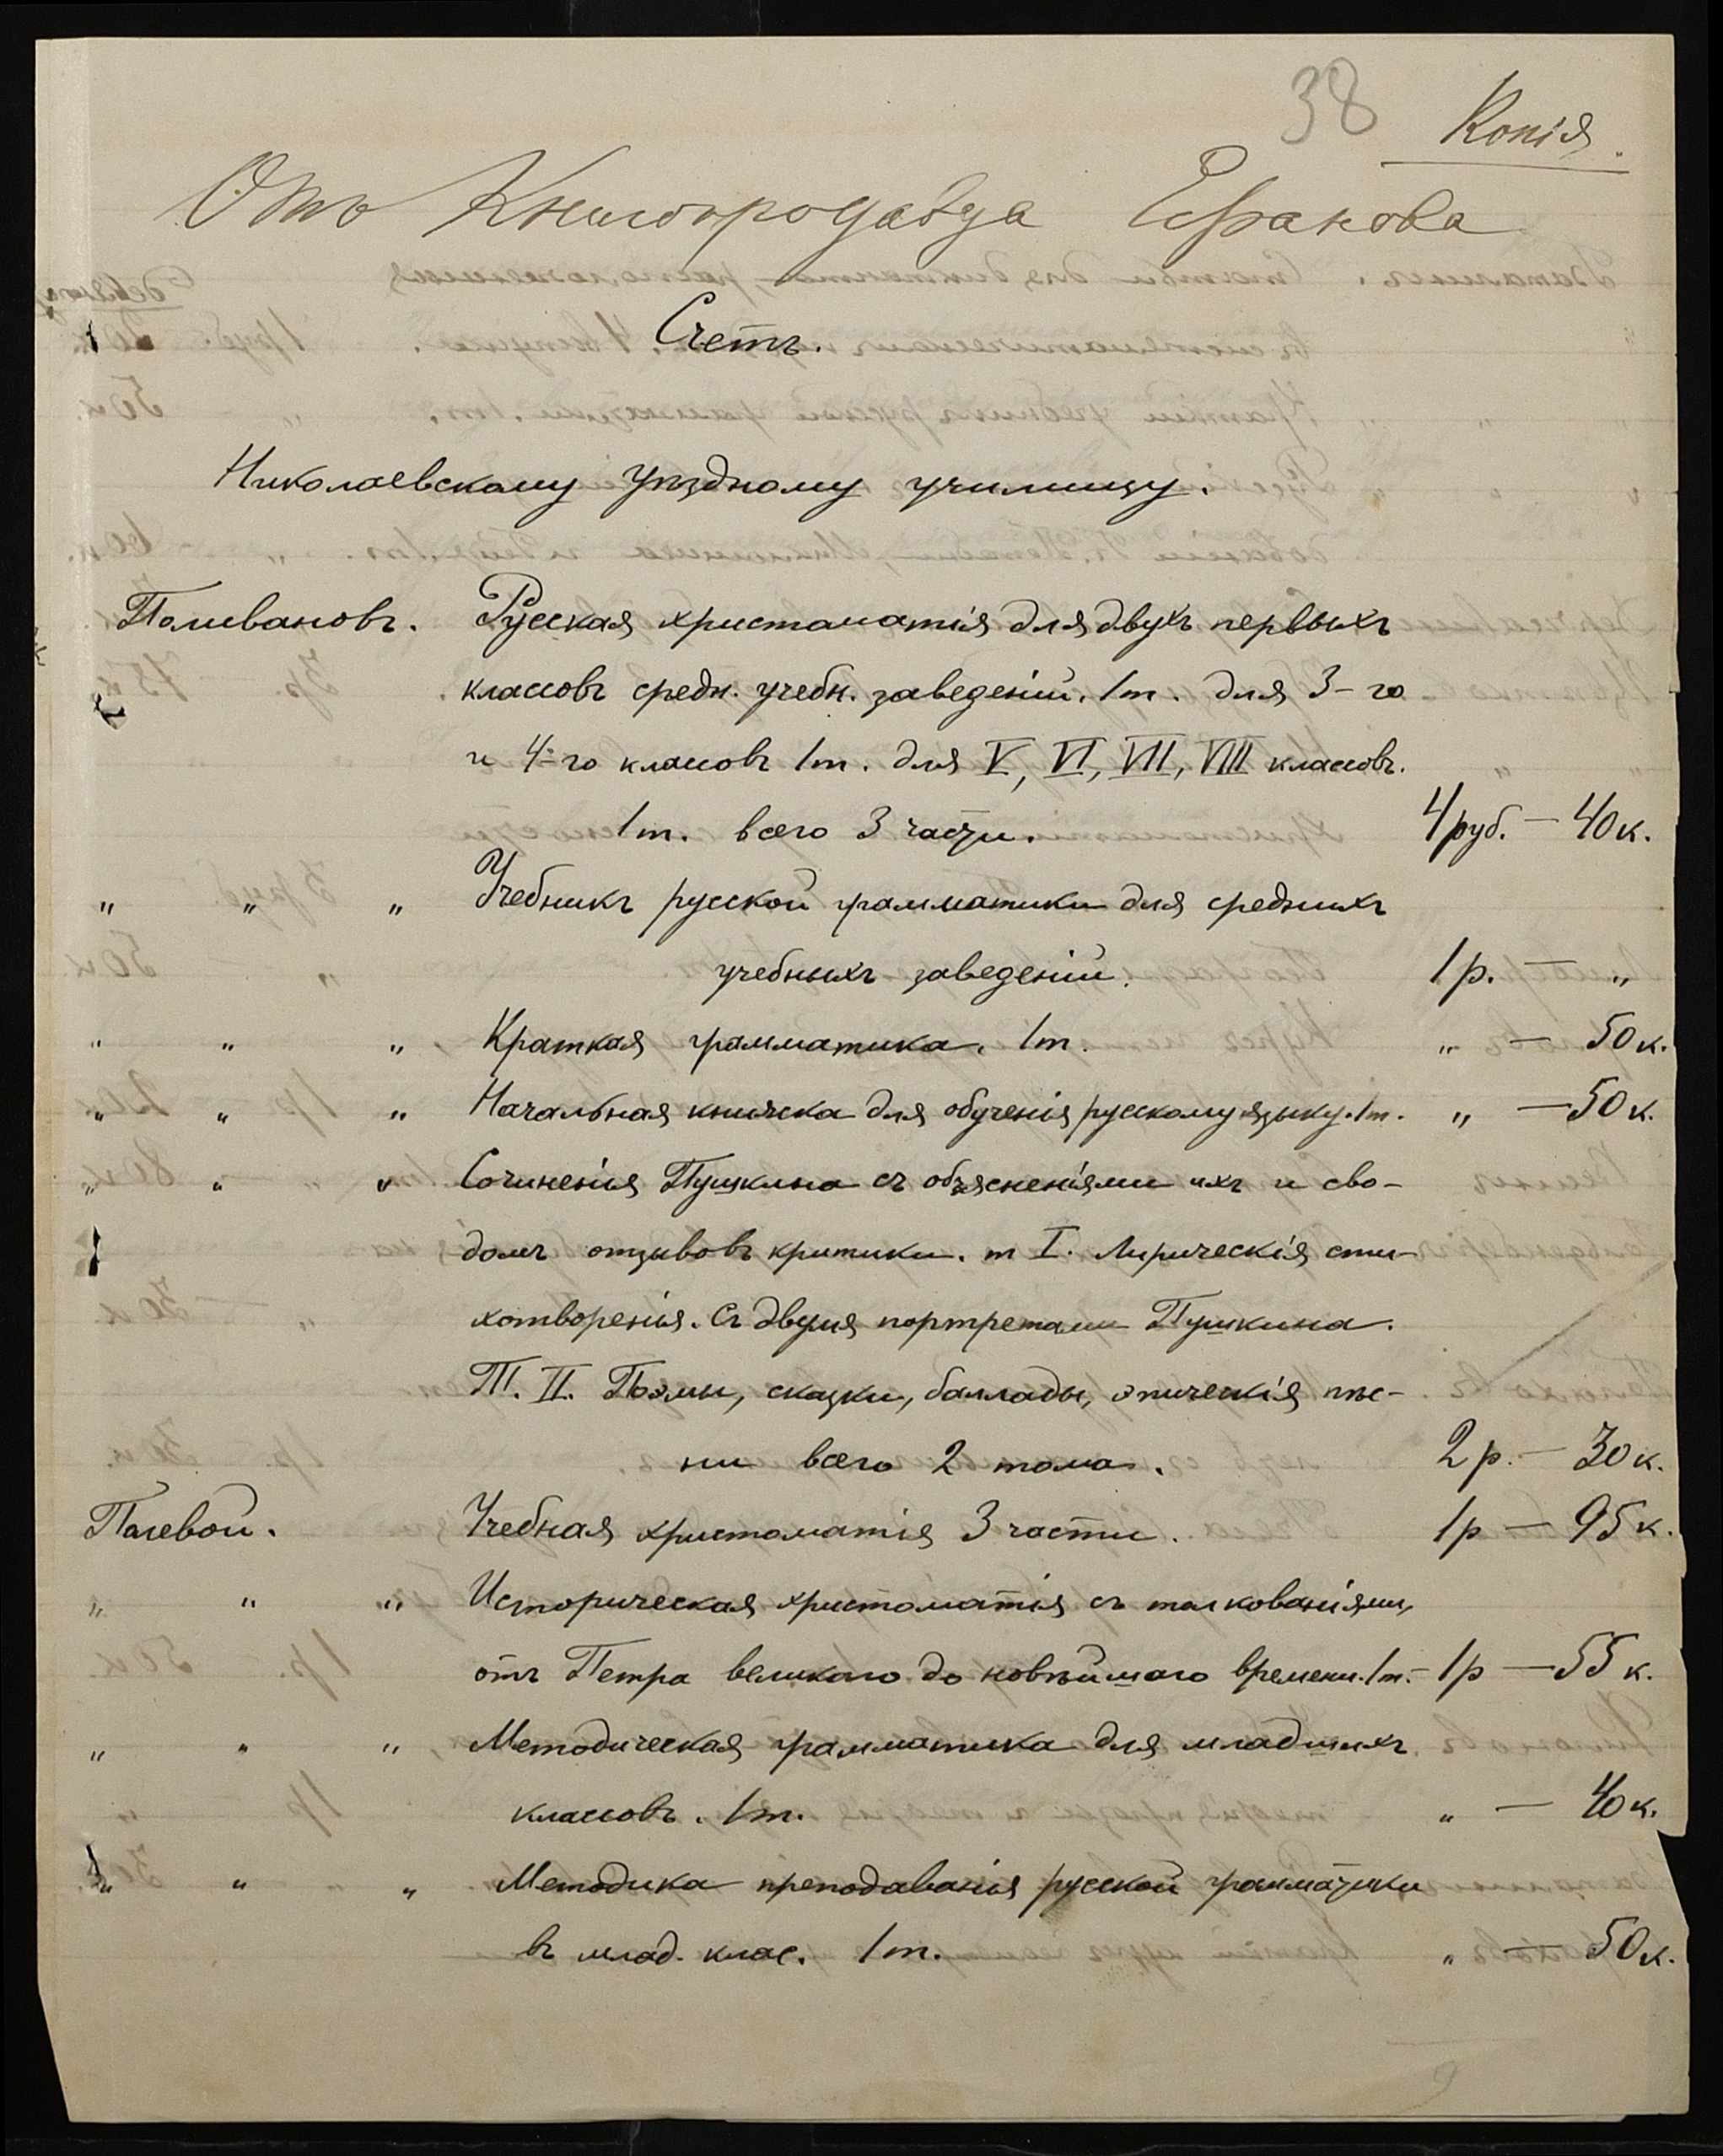 38 Копія.
Отъ Книгопродавца
Счетъ.
Николаевскому Уѣздному училищу.
Поливановъ. Русская христоматія для двухъ первыхъ
классовъ средн. учебн. заведеній. 1 т. для 3-го
и 4-го классовъ 1 т. для V, VI, VII, VIII классовъ.
1 т. всего 3 части. 4 руб. — 40 к.
„ „ „ Учебникъ русской грамматики для среднихъ
учебныхъ заведеній. 1 р. — „
„ „ „ Краткая грамматика. 1 т. „ — 50 к.
„ „ „ Начальная книжка для обученія русскому языку. 1 т. „ — 50 к.
„ „ „ Сочиненія Пушкина съ объясненіями ихъ и сво-
домъ отзывовъ критики. т I. Лирическія сти-
хотворенія. Съ двумя портретами Пушкина.
Т. II. Поэмы, сказки, баллады, эпическія пѣс-
ни всего 2 тома. 2 р. — 30 к.
Полевой. Учебная христоматія 3 части. 1 р — 95 к.
„ „ „ Историческая христоматія съ толкованіями,
отъ Петра великаго до новѣйшаго времени. 1 т. — 1 р — 55 к.
„ „ „ Методическая грамматика для младшихъ
классовъ. 1 т. „ — 40 к.
„ „ „ Методика преподаванія русской грамматики
въ млад. клас. 1 т. „ — 50 к.